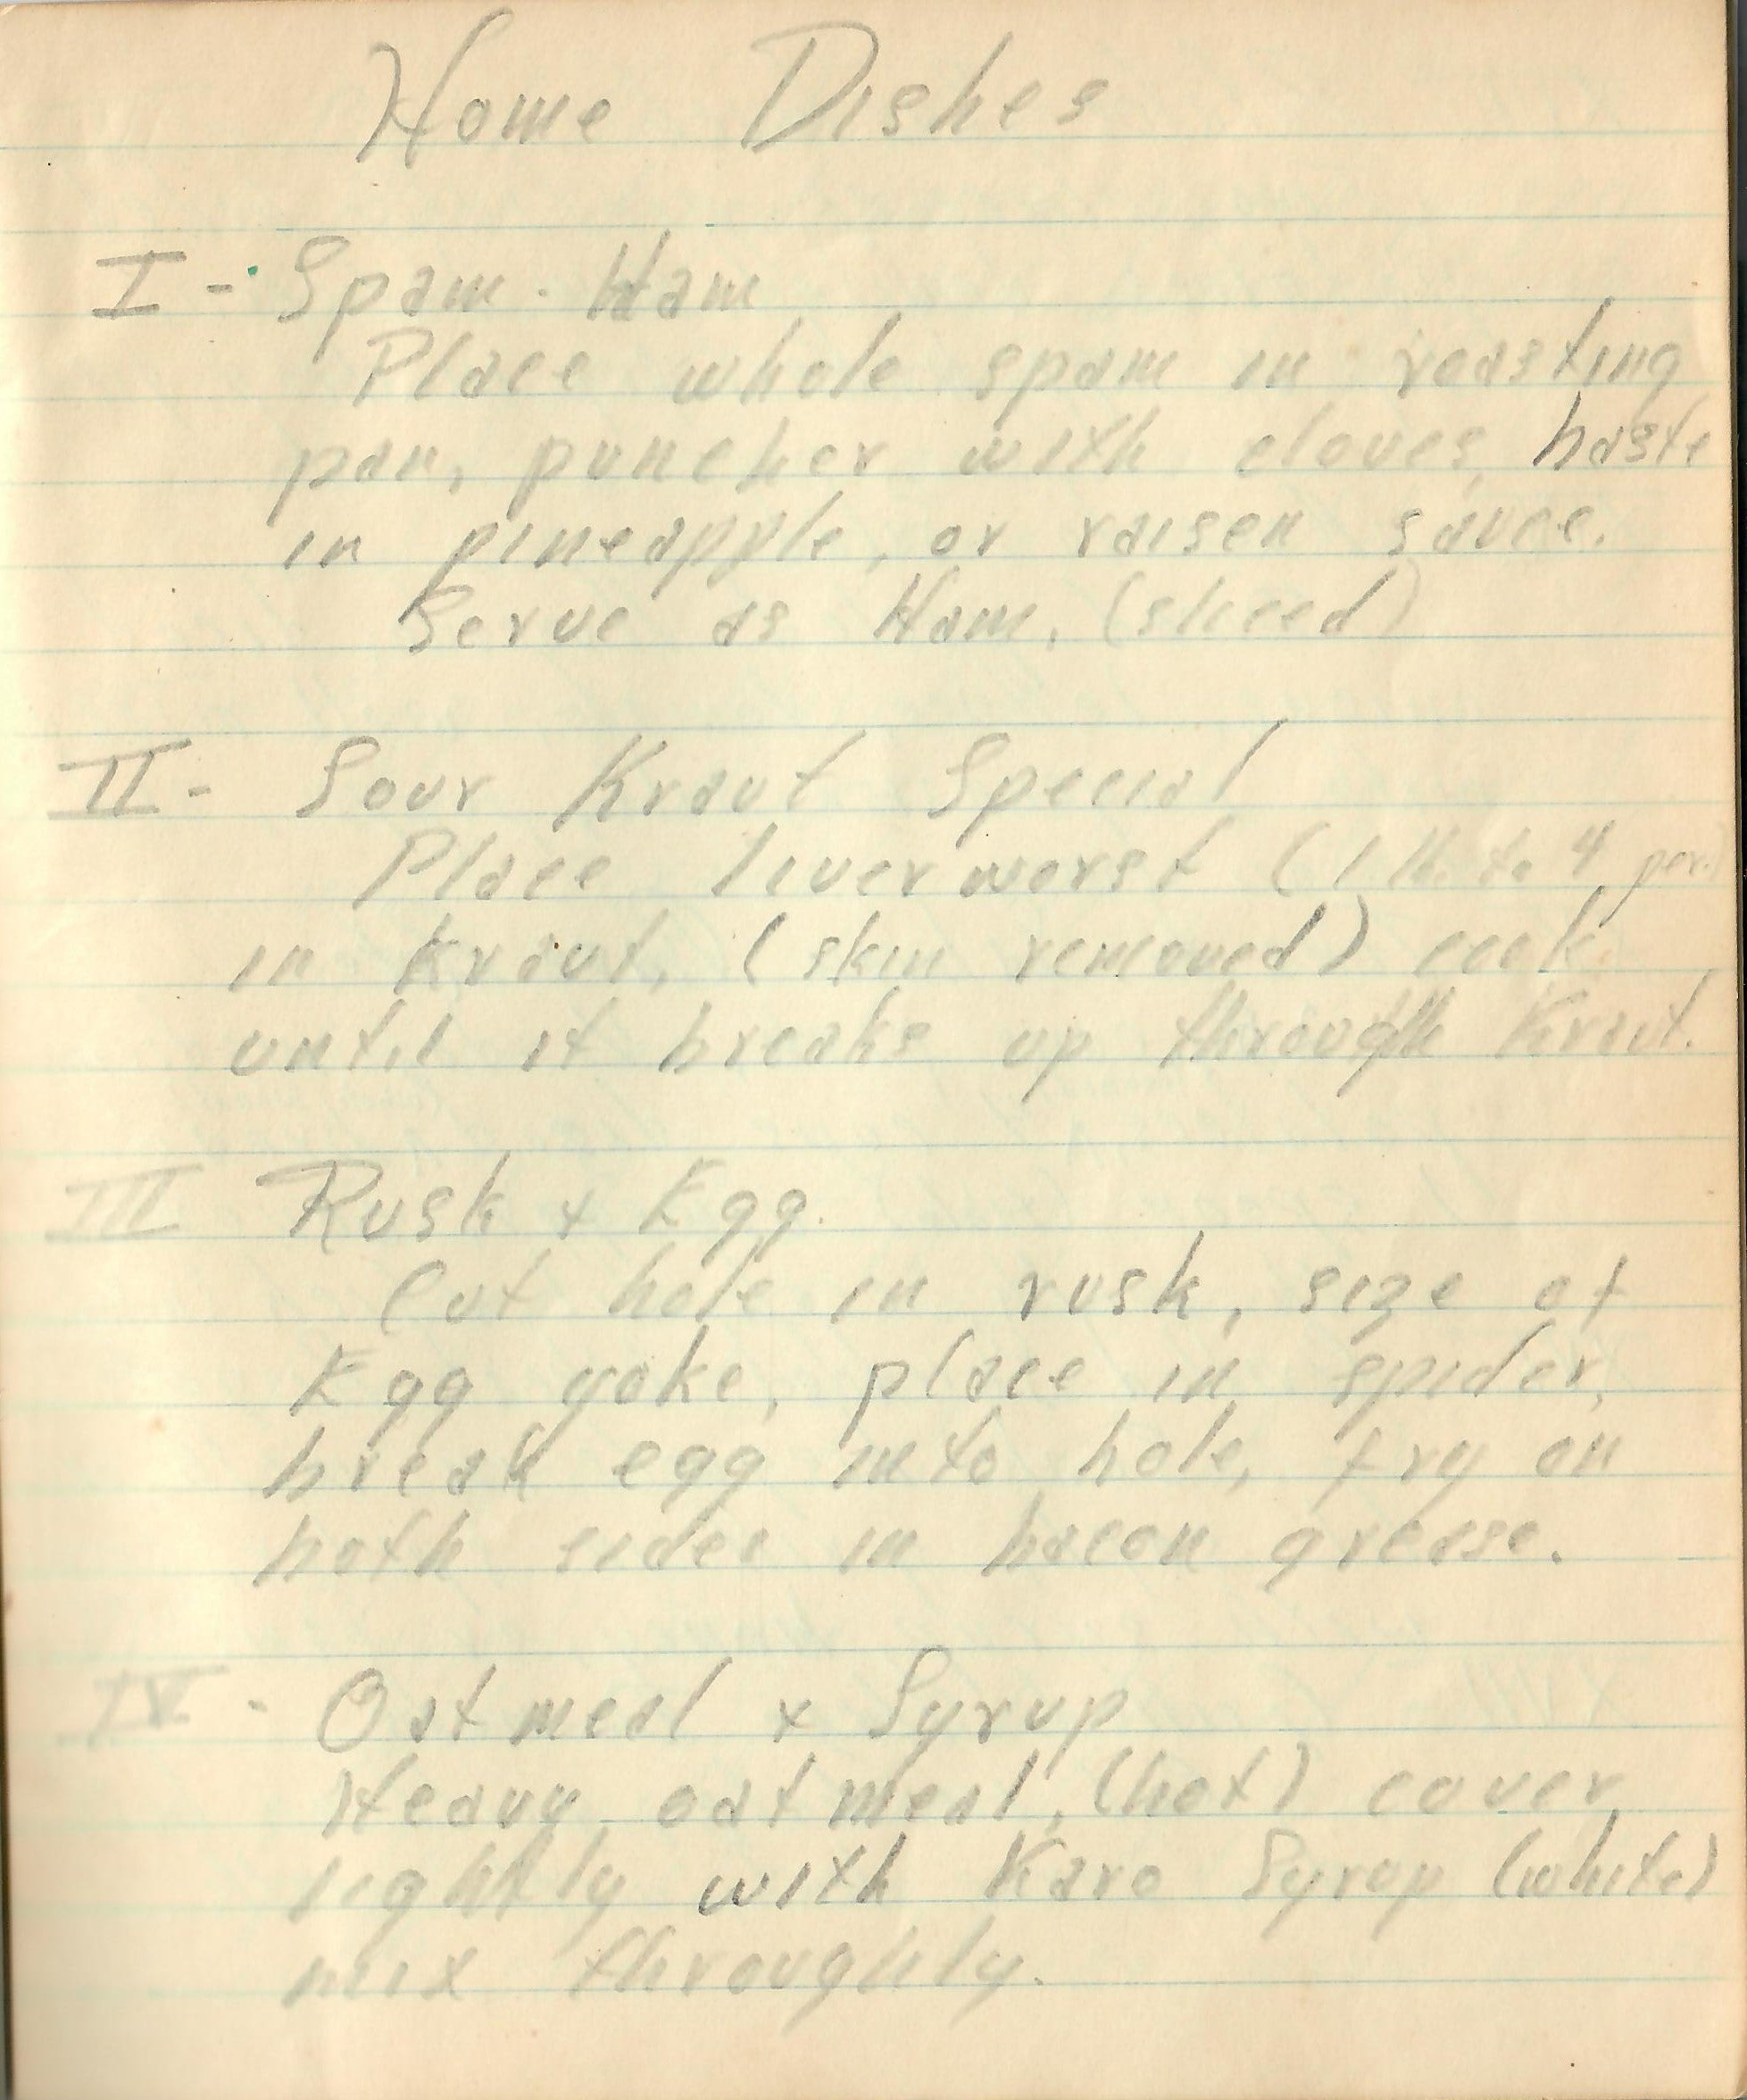 Home Dishes
I - Spam - Ham
Place whole spam in roasting
pan, puncher with cloves, baste
in pineapple, or raisen sauce.
Serve as Ham. (sliced)
II - Sour Kraut Special
Place liverworst (1 lb. to 4 per.)
in Kraut, (skin removed) cook
until it breaks up through Kraut.
III Rusk + Egg.
Cut hole in rusk, size of
Egg yoke, place in spider,
break egg into hole, fry on
both sides in bacon grease.
IV - Oatmeal + Syrup
Heavy oatmeal, (hot) cover
lightly with Karo Syrup (white)
mix throughly.